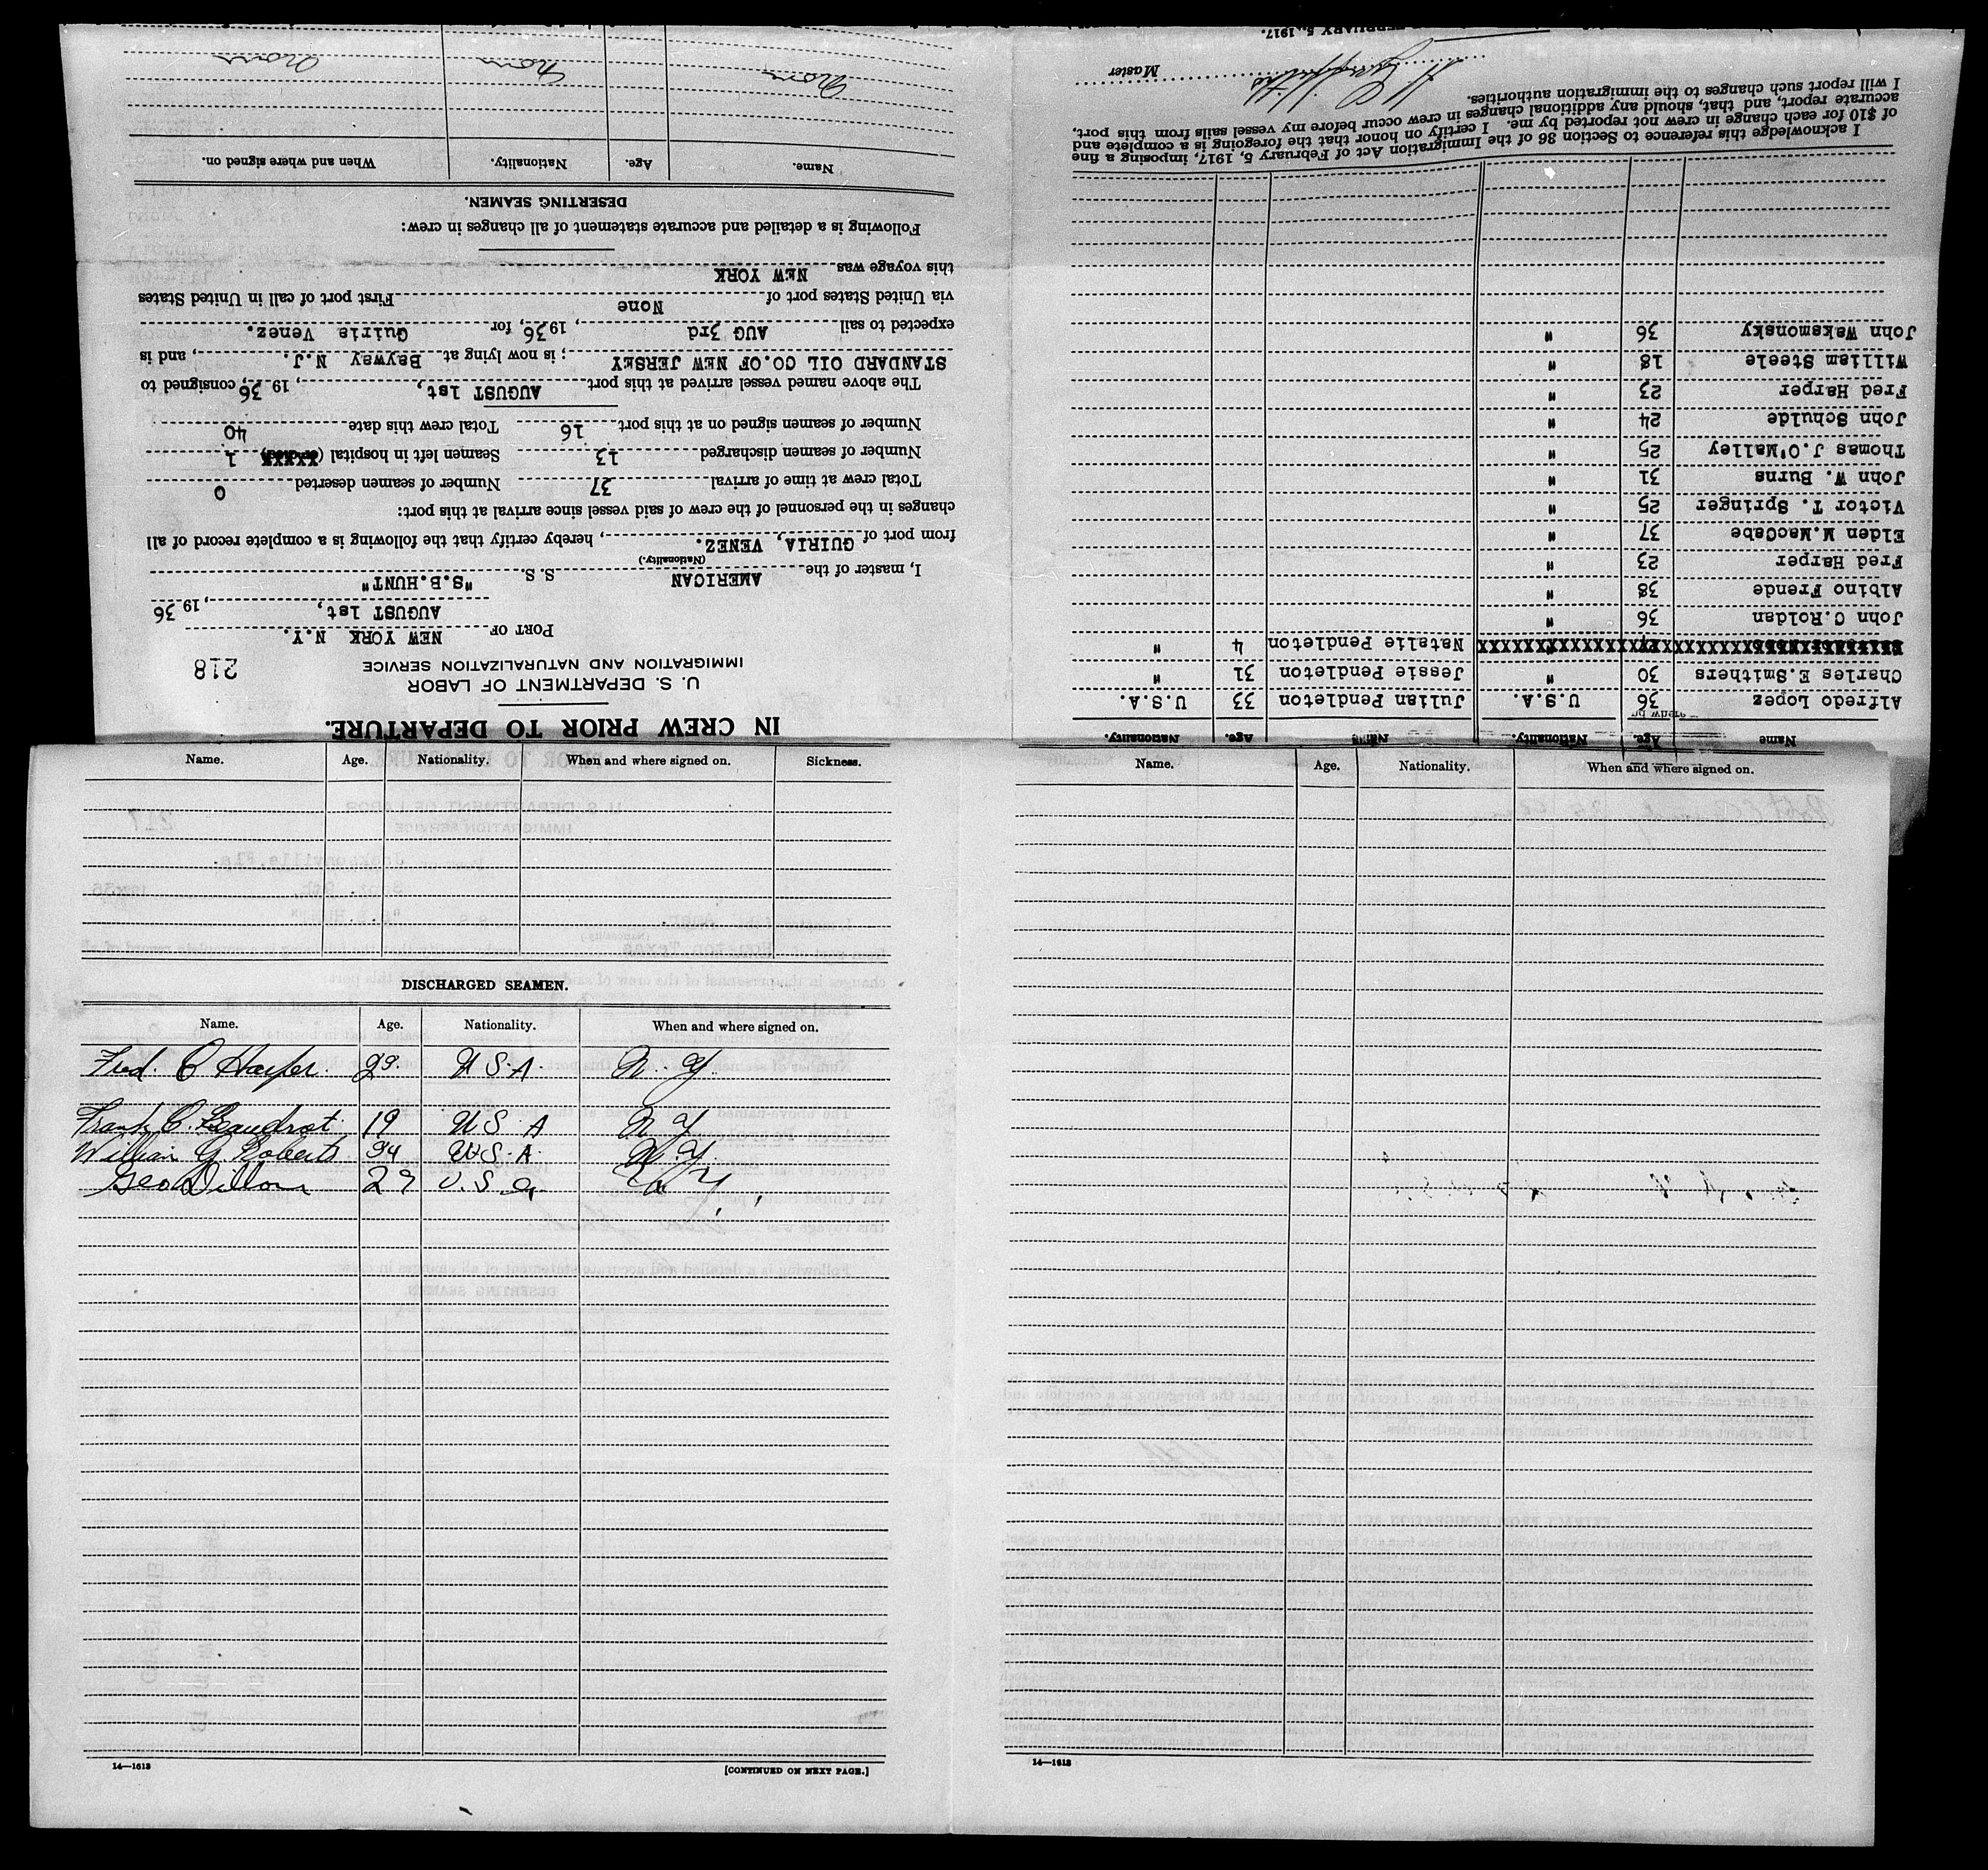 IN CREW PRIOR TO DEPARTURE.
U. S. DEPARTMENT OF LABOR
IMMIGRATION AND NATURALIZATION SERVICE
218
PORT OF NEW YORK N.Y.
AUGUST 1st, , 1936
I, master of the AMERICAN S. S. "S.B.HUNT"
(Nationality.)
from port of GUIRIA, VENEZ. , hereby certify that the following is a complete record of all
changes in the personnel of the crew of said vessel since arrival at this port:
Total crew at time of arrival 37 Number of seamen deserted 0
Number of seamen discharged 13 Seamen left in hospital 1
Number of seamen signed on at this port 16 Total crew this date 40
The above named vessel arrived at this port AUGUST 1st, , 1936, consigned to
STANDARD OIL CO.OF NEW JERSEY ; is now lying at Bayway N.J. , and is
expected to sail AUG 3rd , 1936, for Guiria Venez.
via United States port of None First port of call in United States
this voyage was NEW YORK
Following is a detailed and accurate statement of all changes in crew:
DESERTING SEAMEN.
Name. Age. Nationality. When and where signed on.
None None None
Name Age. Nationality. Name Age. Nationality.
Alfredo Lopez 36 U.S.A. Julian Pendleton 33 U.S.A.
Charles E.Smithers 30 " Jessie Pendleton 31 "
Natalie Pendleton 4 "
John C.Roldan 36 "
Albino Frende 38 "
Fred Harper 23 "
Elden M.MacCabe 37 "
Victor T. Springer 25 "
John W. Burns 31 "
Thomas J.O'Malley 25 "
John Schulde 24 "
Fred Harper 23 "
William Steele 18 "
John Wakamonsky 36 "
I acknowledge this reference to Section 36 of the Immigration Act of February 5, 1917, imposing a fine
of $10 for each change in crew not reported by me. I certify on honor that the foregoing is a complete and
accurate report, and that, should any additional changes in crew occur before my vessel sails from this port,
I will report such changes to the immigration authorities.
Master
FEBRUARY 5, 1917.
Name. Age. Nationality. When and where signed on. Sickness.
DISCHARGED SEAMEN.
Name. Age. Nationality. When and where signed on.
Fred. C Harper. 23. U.S.A. N.Y
Frank C. 19 U.S.A N Y
William G. Roberts 34 U.S.A. N.Y.
Geo Dillon 29 U.S.A. N.Y.
14—1613
[CONTINUED ON NEXT PAGE.]
Name. Age. Nationality. When and where signed on.
14—1613